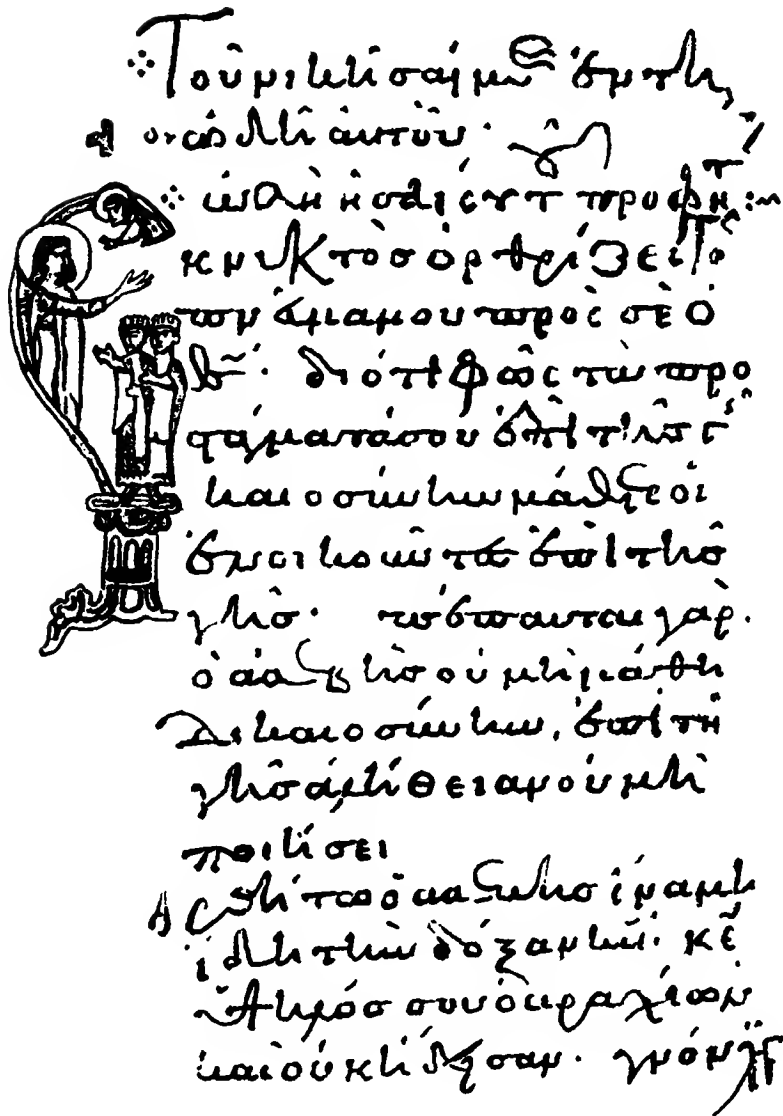 Τοῦ νικῆσαί με ἐν τῇ
ᾠδῇ αὐτοῦ·
ὠδὴ ἡσαΐου τ προφήτ
κ νυκτὸσ ὀρθρίζει τὸ
πνᾶ μου πρὸς σὲ ὁ
θς· διότι φῶς τὰ προ
στάγματά σου ἐπὶ τῆς γῆς
δικαιοσύνην μάθετε οἱ
ἐνοικοῦντες ἐπὶ τῆσ
γῆσ· πέπαυται γὰρ
ὁ ἀσεβὴσ οὐ μὴ μάθῃ
δικαιοσύνην, ἐπὶ τῆ
γῆσ ἀλήθειαν οὐ μὴ
ποιήσει
ἀρθήτω ὁ ἀσεβὴσ ἵνα μὴ
ἴδῃ τὴν δόξαν κῦ· κε
ὑψηλόσ σου ὁ βραχίων
καὶ οὐκ ἤδεισαν· γνόν